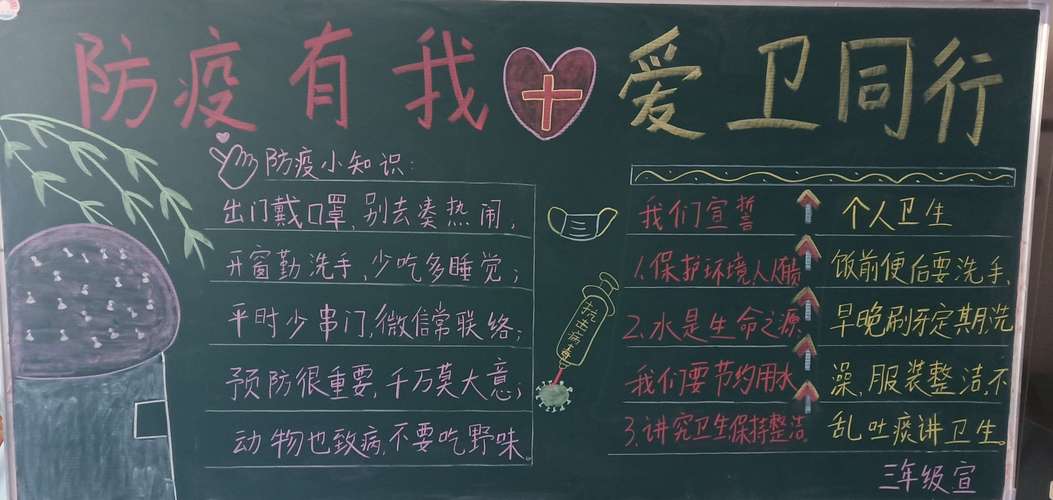 防疫有我 爱卫同行
防疫小知识:
出门戴口罩,别去凑热闹;
开窗勤洗手,少吃多睡觉;
平时少串门,微信常联络;
预防很重要,千万莫大意;
动物也致病,不要吃野味。
抗击病毒
我们宣誓
1.保护环境,人人有责
2.水是生命之源
我们要节约用水
3.讲究卫生保持整洁
个人卫生
饭前便后要洗手,
早晚刷牙定期洗
澡,服装整洁,不
乱吐痰讲卫生。
三年级宣